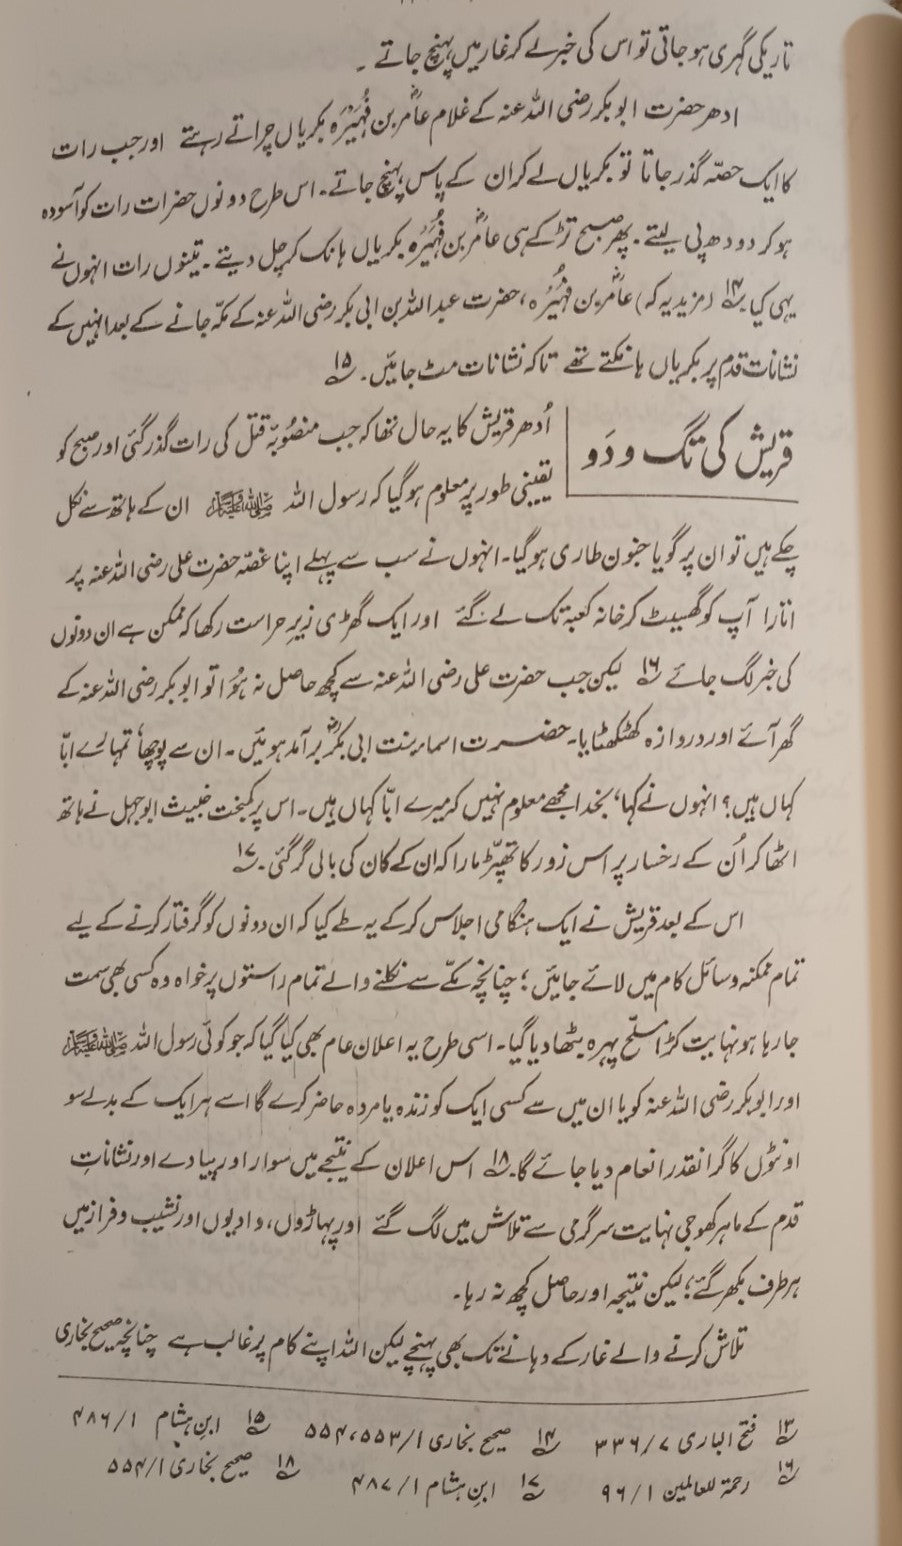 تاریکی گہری ہو جاتی تو اس کی خبر لے کر غار میں پہنچ جاتے ۔
ادھر حضرت ابوبکر رضی اللہ عنہ کے غلام عامرؓ بن فُہَیْرَہ بکریاں چراتے رہتے اور جب رات
کا ایک حصّہ گذر جاتا تو بکریاں لے کر ان کے پاس پہنچ جاتے۔ اس طرح دونوں حضرات رات کو آسودہ
ہو کر دودھ پی لیتے۔ پھر صبح تڑکے ہی عامرؓ بن فُہَیْرَہ بکریاں ہانک کر چل دیتے۔ تینوں رات انہوں نے
یہی کیا۔ ۱۴ (مزید یہ کہ) عامرؓ بن فُہَیْرَہ، حضرت عبد اللہ بن ابی بکر رضی اللہ عنہ کے مکّہ جانے کے بعد انہیں کے
نشانات قدم پر بکریاں ہانکتے تھے تاکہ نشانات مٹ جائیں۔ ۱۵
قریش کی تگ و دَو
اُدھر قریش کا یہ حال تھا کہ جب منصوبۂ قتل کی رات گذر گئی اور صبح کو
یقینی طور پر معلوم ہو گیا کہ رسول اللہ ﷺ ان کے ہاتھ سے نکل
چکے ہیں تو ان پر گویا جنون طاری ہو گیا۔ انہوں نے سب سے پہلے اپنا غصّہ حضرت علی رضی اللہ عنہ پر
اتارا آپ کو گھسیٹ کر خانہ کعبہ تک لے گئے اور ایک گھڑی زیرِ حراست رکھا کہ ممکن ہے ان دونوں
کی خبر لگ جائے ۱۶ لیکن جب حضرت علی رضی اللہ عنہ سے کچھ حاصل نہ ہُوا تو ابوبکر رضی اللہ عنہ کے
گھر آئے اور دروازہ کھٹکھٹایا۔ حضرت اسماء بنت ابی بکرؓ برآمد ہوئیں۔ ان سے پوچھا تمہارے ابّا
کہاں ہیں؟ انہوں نے کہا، بخدا مجھے معلوم نہیں کہ میرے ابّا کہاں ہیں۔ اس پر کمبخت خبیث ابوجہل نے ہاتھ
اٹھا کر اُن کے رخسار پر اس زور کا تھپّڑ مارا کہ ان کے کان کی بالی گر گئی۔ ۱۷
اس کے بعد قریش نے ایک ہنگامی اجلاس کر کے یہ طے کیا کہ ان دونوں کو گرفتار کرنے کے لیے
تمام ممکنہ وسائل کام میں لائے جائیں؛ چنانچہ مکّے سے نکلنے والے تمام راستوں پر خواہ وہ کسی بھی سمت
جا رہا ہو نہایت کڑا مسلّح پہرہ بٹھا دیا گیا۔ اسی طرح یہ اعلان عام بھی کیا گیا کہ جو کوئی رسول اللہ ﷺ
اور ابوبکر رضی اللہ عنہ کو یا ان میں سے کسی ایک کو زندہ یا مردہ حاضر کرے گا اسے ہر ایک کے بدلے سو
اونٹوں کا گرانقدر انعام دیا جائے گا۔ ۱۸ اس اعلان کے نتیجے میں سوار اور پیادے اور نشاناتِ
قدم کے ماہر کھوجی نہایت سرگرمی سے تلاش میں لگ گئے اور پہاڑوں، وادیوں اور نشیب و فراز میں
ہر طرف بکھر گئے؛ لیکن نتیجہ اور حاصل کچھ نہ رہا۔
تلاش کرنے والے غار کے دہانے تک بھی پہنچے لیکن اللہ اپنے کام پر غالب ہے چنانچہ صحیح بخاری
۱۳ فتح الباری ۷/۳۳۶ ۱۴ صحیح بخاری ۱/۵۵۳، ۵۵۴ ۱۵ ابن ہشام ۱/۴۸۶
۱۶ رحمۃ للعالمین ۱/۹۶ ۱۷ ابن ہشام ۱/۴۸۷ ۱۸ صحیح بخاری ۱/۵۵۴